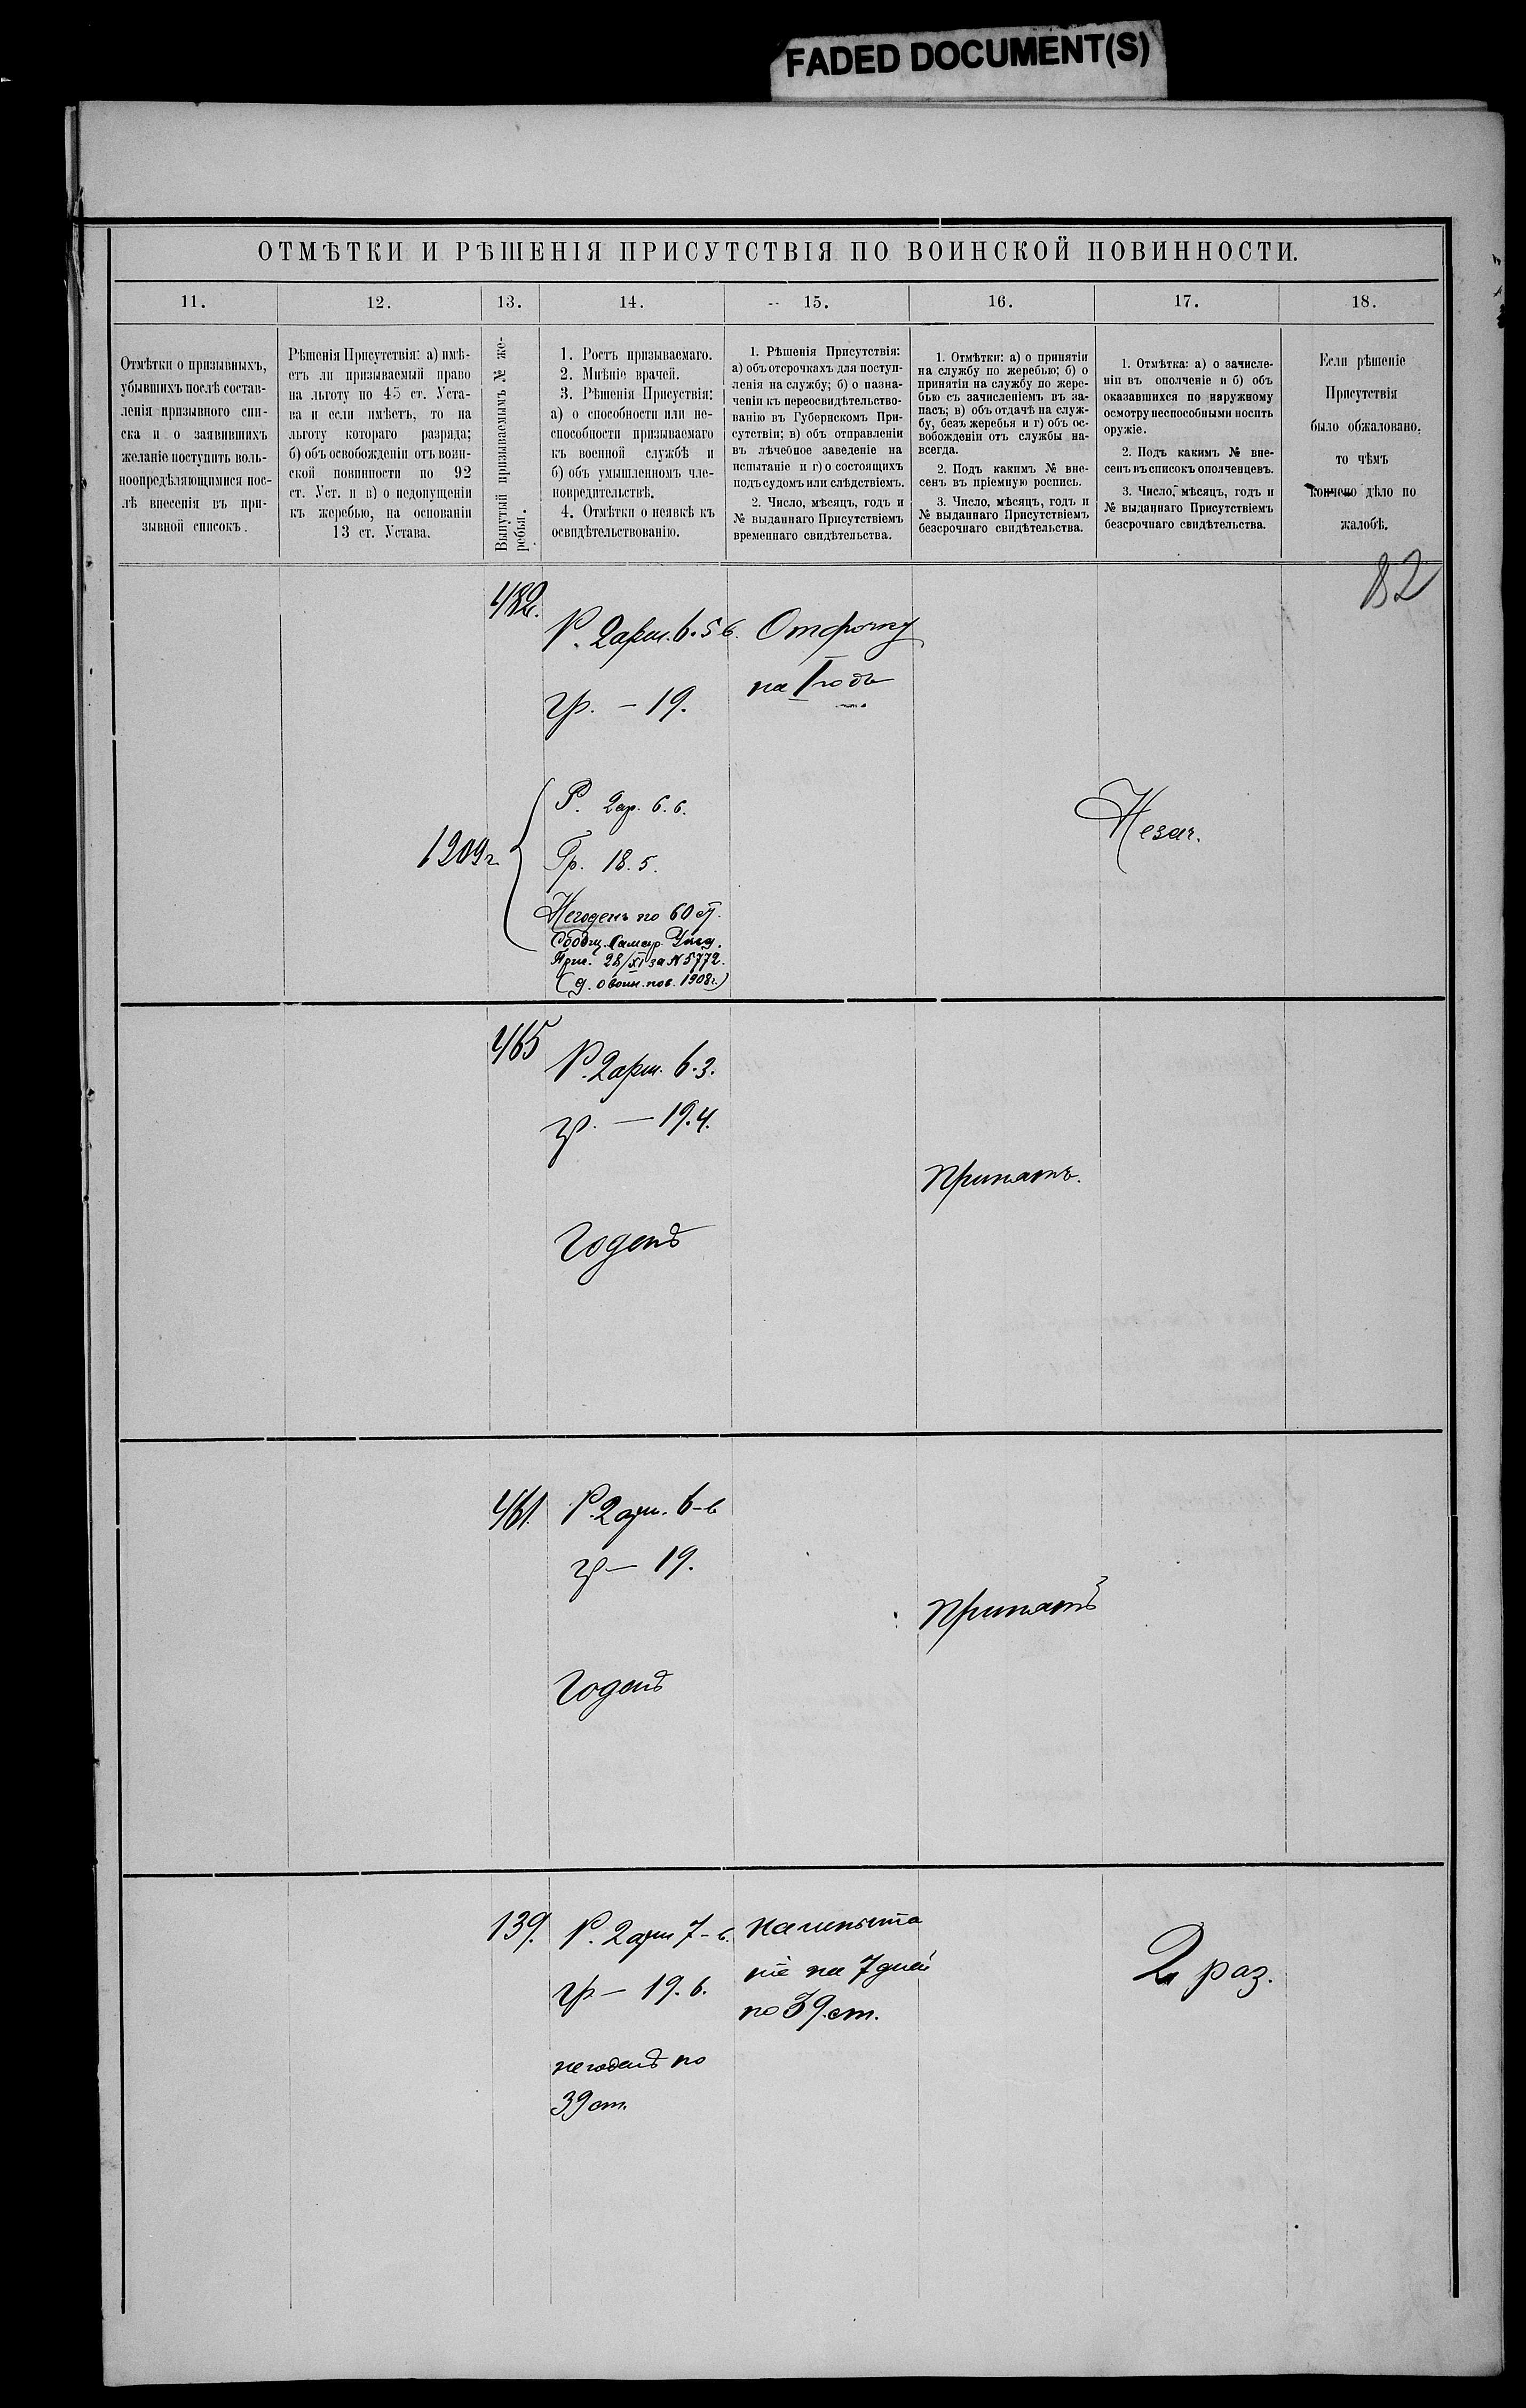 FADED DOCUMENT(S)
ОТМѢТКИ И РѢШЕНІЯ ПРИСУТСТВІЯ ПО ВОИНСКОЙ ПОВИННОСТИ.
11.
12.
13.
14.
15.
16.
17.
18.
Отмѣтки о призывныхъ,
убывшихъ послѣ состав-
ленія призывного спи-
ска и о заявившихъ
желаніе поступить воль-
ноопредѣляющимися пос-
лѣ внесенія въ при-
зывной списокъ.
Рѣшенія Присутствія: а) имѣ-
етъ ли призываемый право
на льготу по 45 ст. Уста-
ва и если имѣетъ, то на
льготу котораго разряда;
б) объ освобожденіи отъ воин-
ской повинности по 92
ст. Уст. и в) о недопущеніи
къ жеребью, на основаніи
13 ст. Устава.
Вынутый призываемымъ № же-
ребья.
1. Ростъ призываемаго.
2. Мнѣніе врачей.
3. Рѣшенія Присуствія:
а) о способности или не-
способности призываемаго
къ военной службѣ и
б) объ умышленномъ чле-
новредительствѣ.
4. Отмѣтки о неявкѣ къ
освидѣтельствованію.
1. Рѣшенія Присутствія:
а) объ отсрочкахъ для поступ-
ленія на службу; б) о назна-
ченіи къ переосвидѣтельство-
ванію въ Губернскомъ При-
сутствіи; в) объ отправленіи
въ лѣчебное заведеніе на
испытаніе и г) о состоящихъ
подъ судомъ или слѣдствіемъ.
2. Число, мѣсяцъ, годъ и
№ выданнаго Присутствіемъ
временнаго свидѣтельства.
1. Отмѣтки: а) о принятіи
на службу по жеребью; б) о
принятіи на службу по жере-
бью съ зачисленіемъ въ за-
пасъ; в) объ отдачѣ на служ-
бу, безъ жеребья и г) объ ос-
вобожденіи отъ службы на-
всегда.
2. Подъ какимъ № вне-
сенъ въ пріемную роспись.
3. Число, мѣсяцъ, годъ и
№ выданнаго Присутствіемъ
безсрочнаго свидѣтельства.
1. Отмѣтка: а) о зачисле-
ніи въ ополченіе и б) объ
оказавшихся по наружному
осмотру неспособными носить
оружіе.
2. Подъ какимъ № вне-
сенъ въ списокъ ополченцевъ.
3. Число, мѣсяцъ, годъ и
№ выданнаго Присутствіемъ
безсрочнаго свидѣтельства.
Если рѣшеніе
Присутствія
было обжаловано,
то чѣмъ
кончено дѣло по
жалобѣ.
82
482.
Р. 2арш. 6.5 в.
гр. - 19.
Отсрочку
на 1 годъ
1909 г.
Р. 2ар. 6. в.
Гр. 18.5.
Негоденъ по 60 ст.
Сообщ. Самар. Уѣзд.
Прис. 28/XI за № 5772.
(д. о воин. пов. 1908 г.)
Незач.
465
Р. 2арш. 6.3.
гр. - 19.4.
Годенъ
Принятъ.
461.
Р. 2арш. 6-в
гр - 19.
Годенъ
Принятъ
139.
Р. 2арш 7-в.
гр - 19.6.
негоденъ по
39 ст.
На испыта
ніе на 7 дней
по 39. ст.
2 раз.